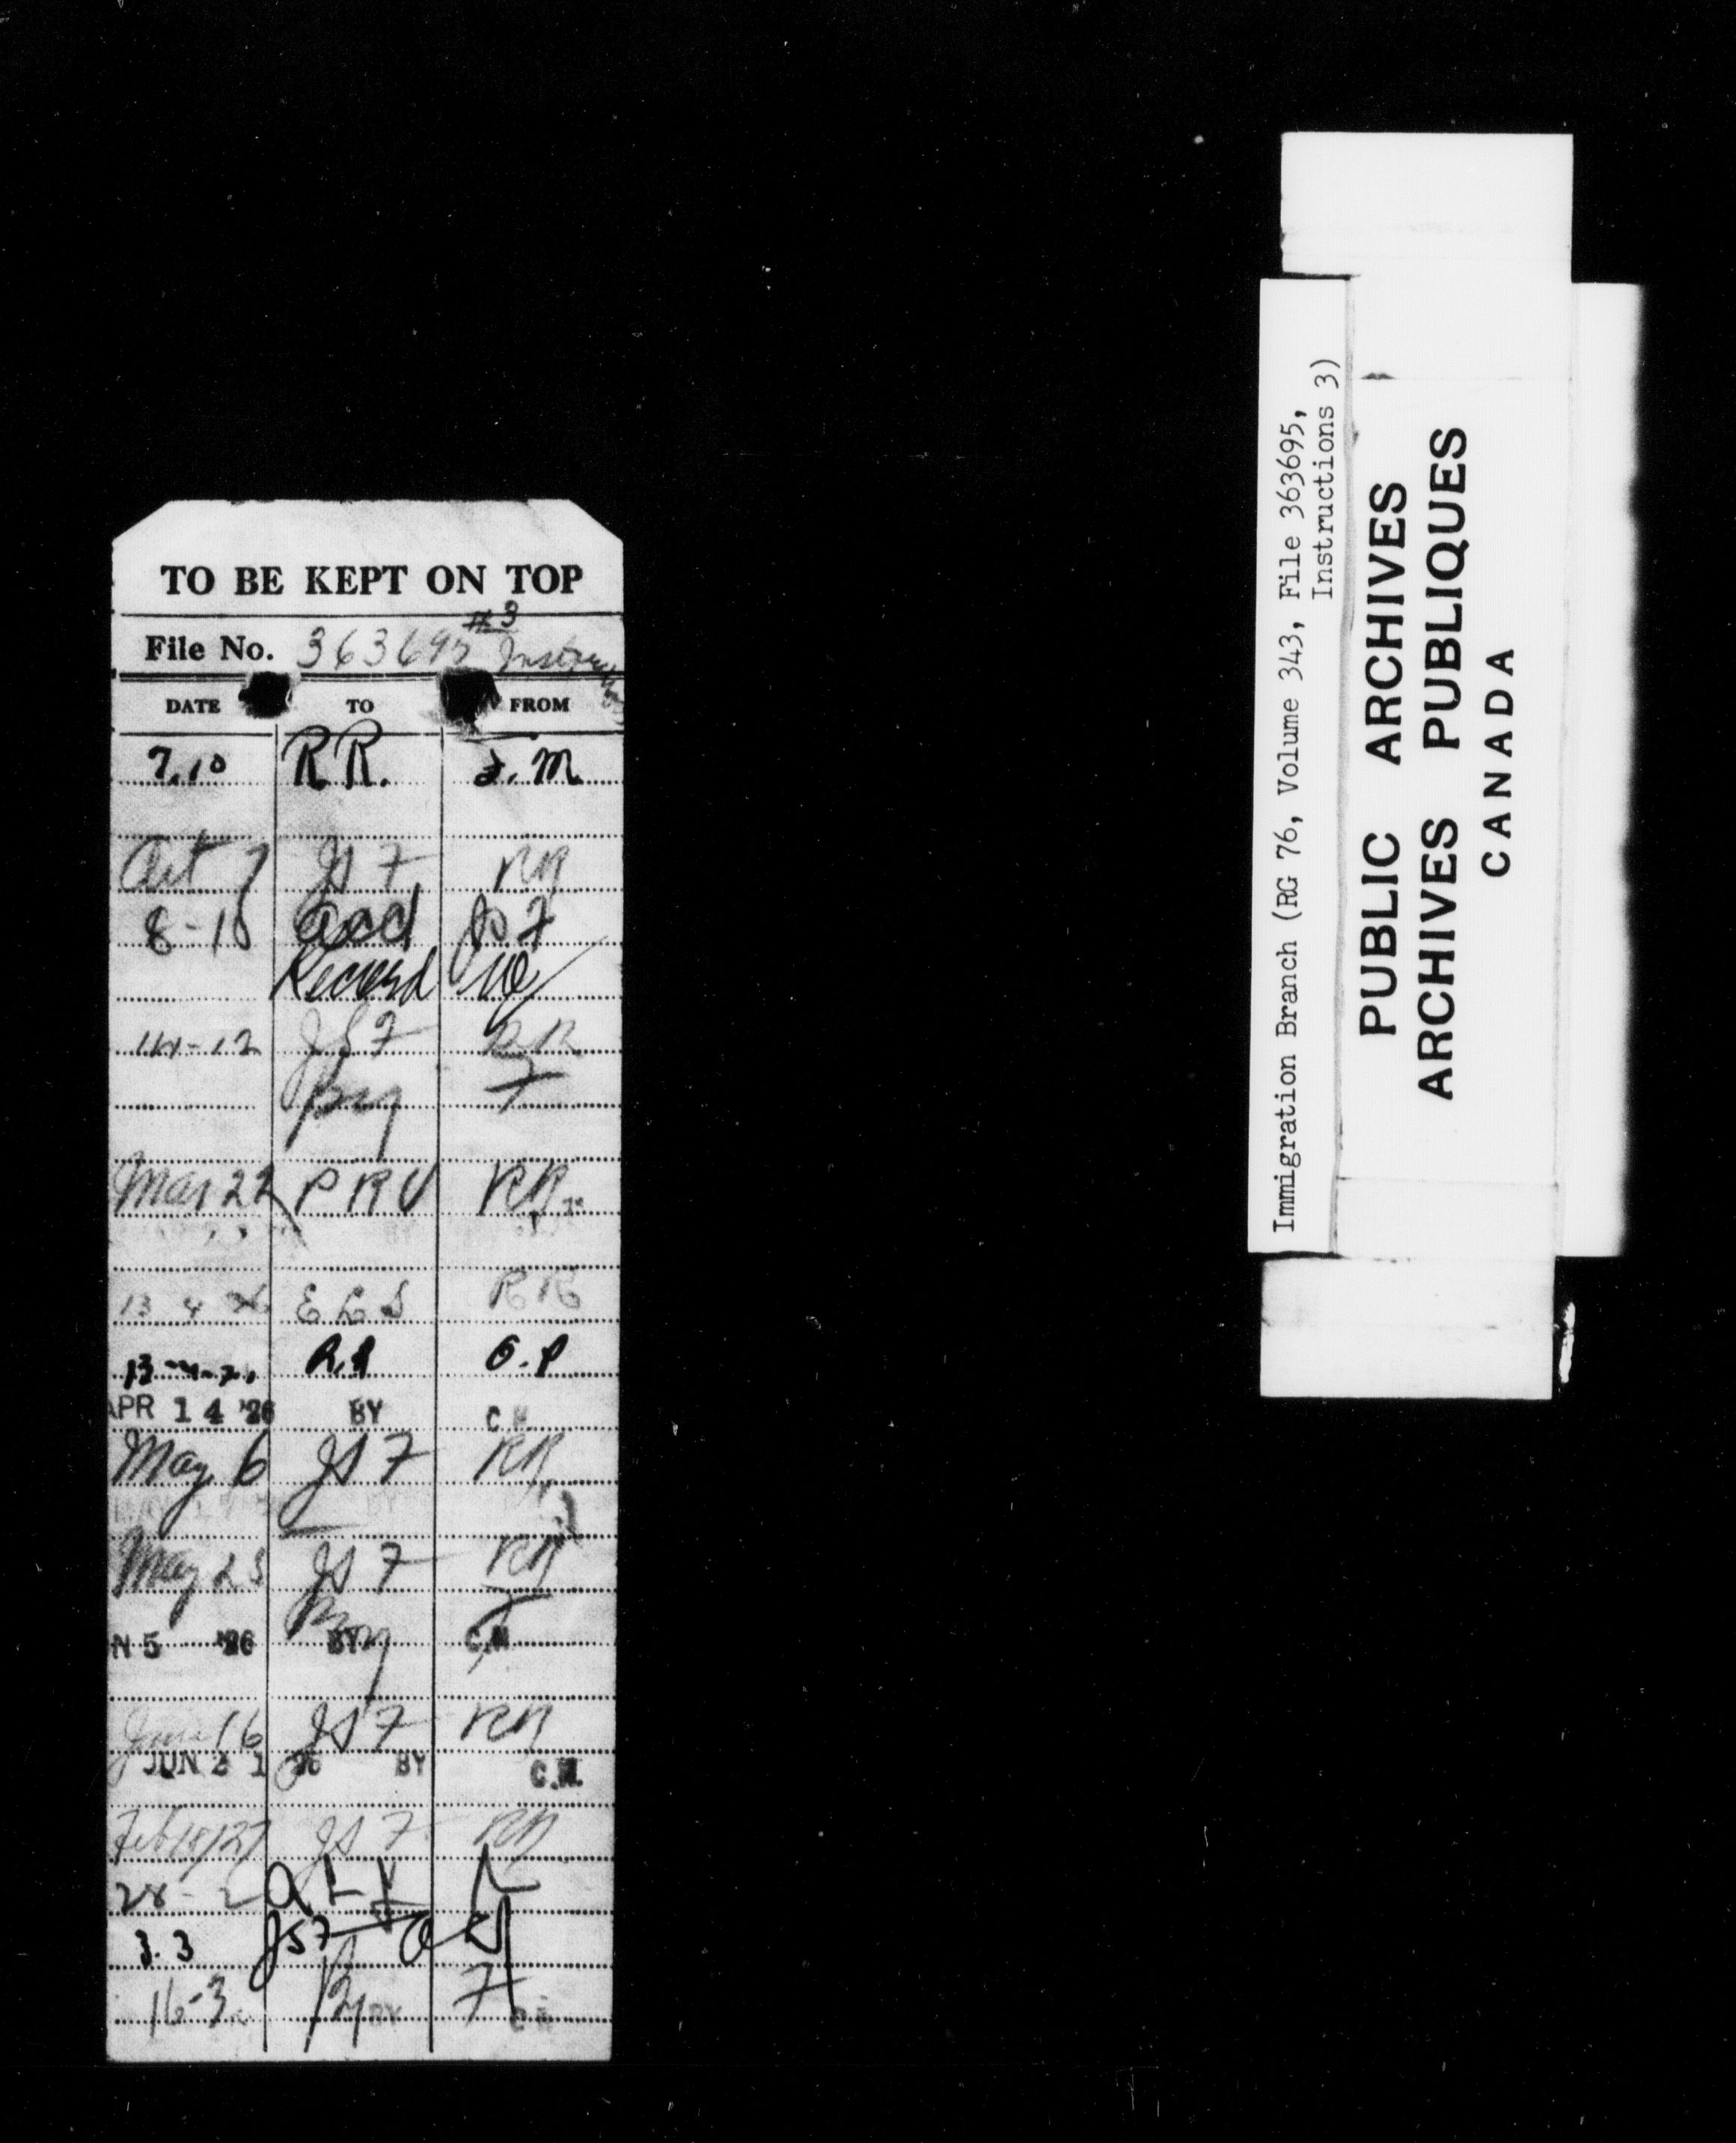 TO BE KEPT ON TOP
#3
File No. 363695
DATE TO FROM
7.10 RR. J.M
Oct 7 JSF RR
8-10 JSF
Record
14-12 JSF RR
By F
Mar 22 PRV RR
13 4 26 ELS RR
13-4-26
APR 14 '26 BY C.M.
May 6 JSF RR
May 25 JSF RR
By F
N 5 '26 BY C.M.
June 16 JSF RR
JUN 21 26 BY C.M.
Feb 18/27 JSF RR
28-2
3.3 JSF
16-3 By F
Immigration Branch (RG 76, Volume 343, File 363695,
Instructions 3)
PUBLIC ARCHIVES
ARCHIVES PUBLIQUES
CANADA